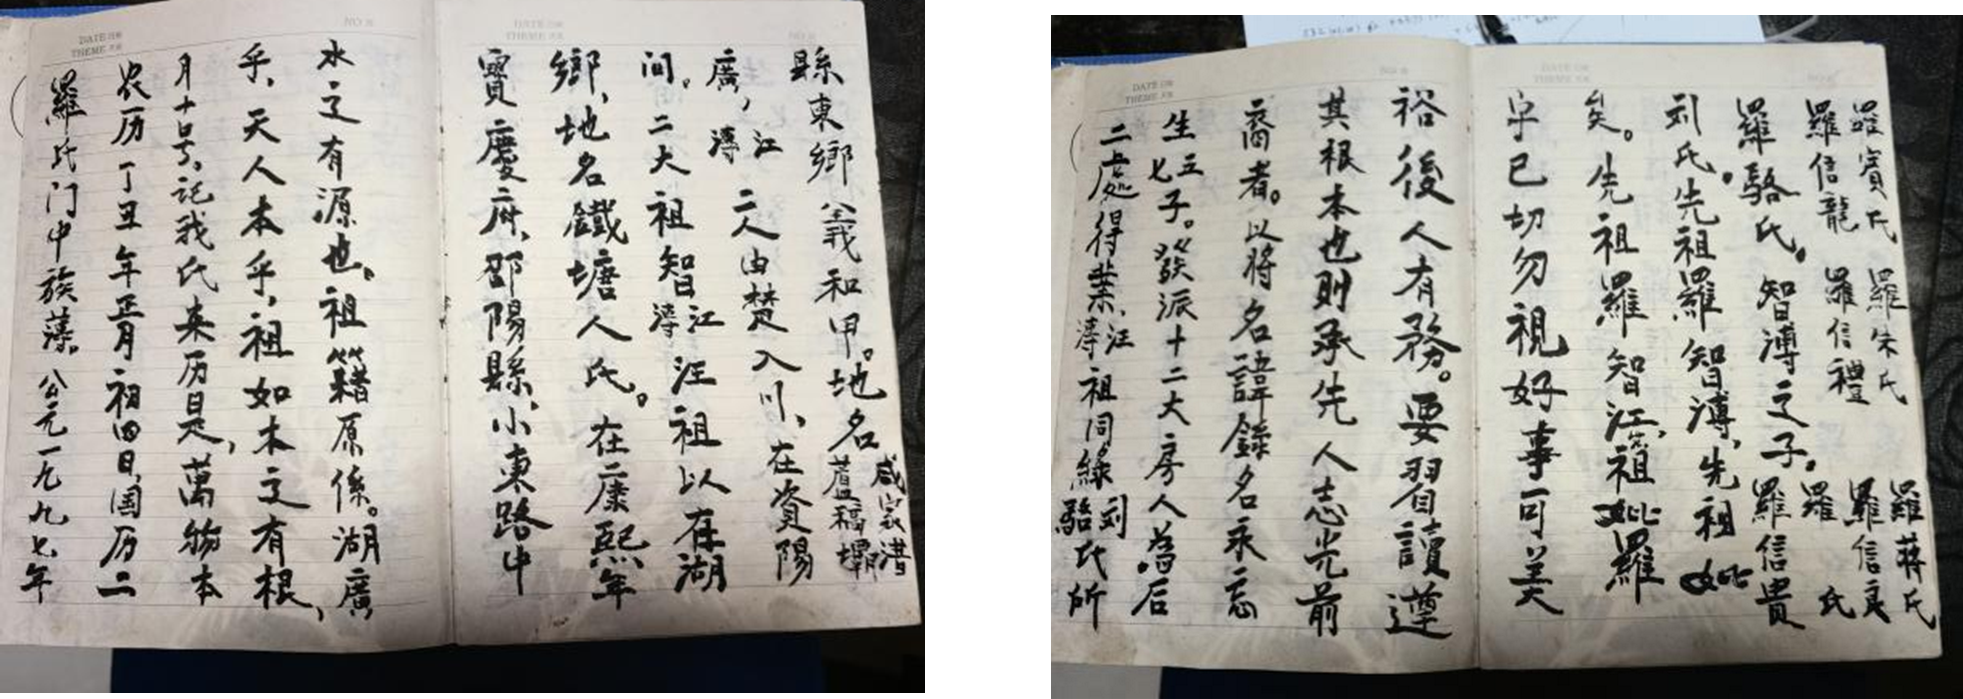 DATE
THEME
NO
羅氏门中族薄。公元一九九七年
农历丁丑年正月初四日,国历二
月十号。記我氏来历是,萬物本
乎,天人本乎,祖如木之有根,
水之有源也。祖籍原係。湖廣
DATE
THEME
寶慶府,邵陽縣,小東路中
鄉,地名鐵塘人氏。在康熙年
间。二大祖智江溥汪祖以在湖
廣,江溥二人由楚入川,在資陽
縣東鄉義和甲。地名蘆稿壩
DATE
THEME
NO
二處得業,江溥祖同緣刘駱氏所
生五七子。發派十二大房人為后
裔者。以將名諱錄名永忘
其根本也則承先人志光前
裕後人有務。要習讀遵
DATE
THEME
字已切勿視好事可美
矣。先祖羅智江,祖妣羅
刘氏。先祖羅智溥,先祖妣
羅駱氏。智溥之子。羅信貴
羅信龍 羅信禮 羅 氏
羅賓氏 羅朱氏 羅信良
羅蔣氏